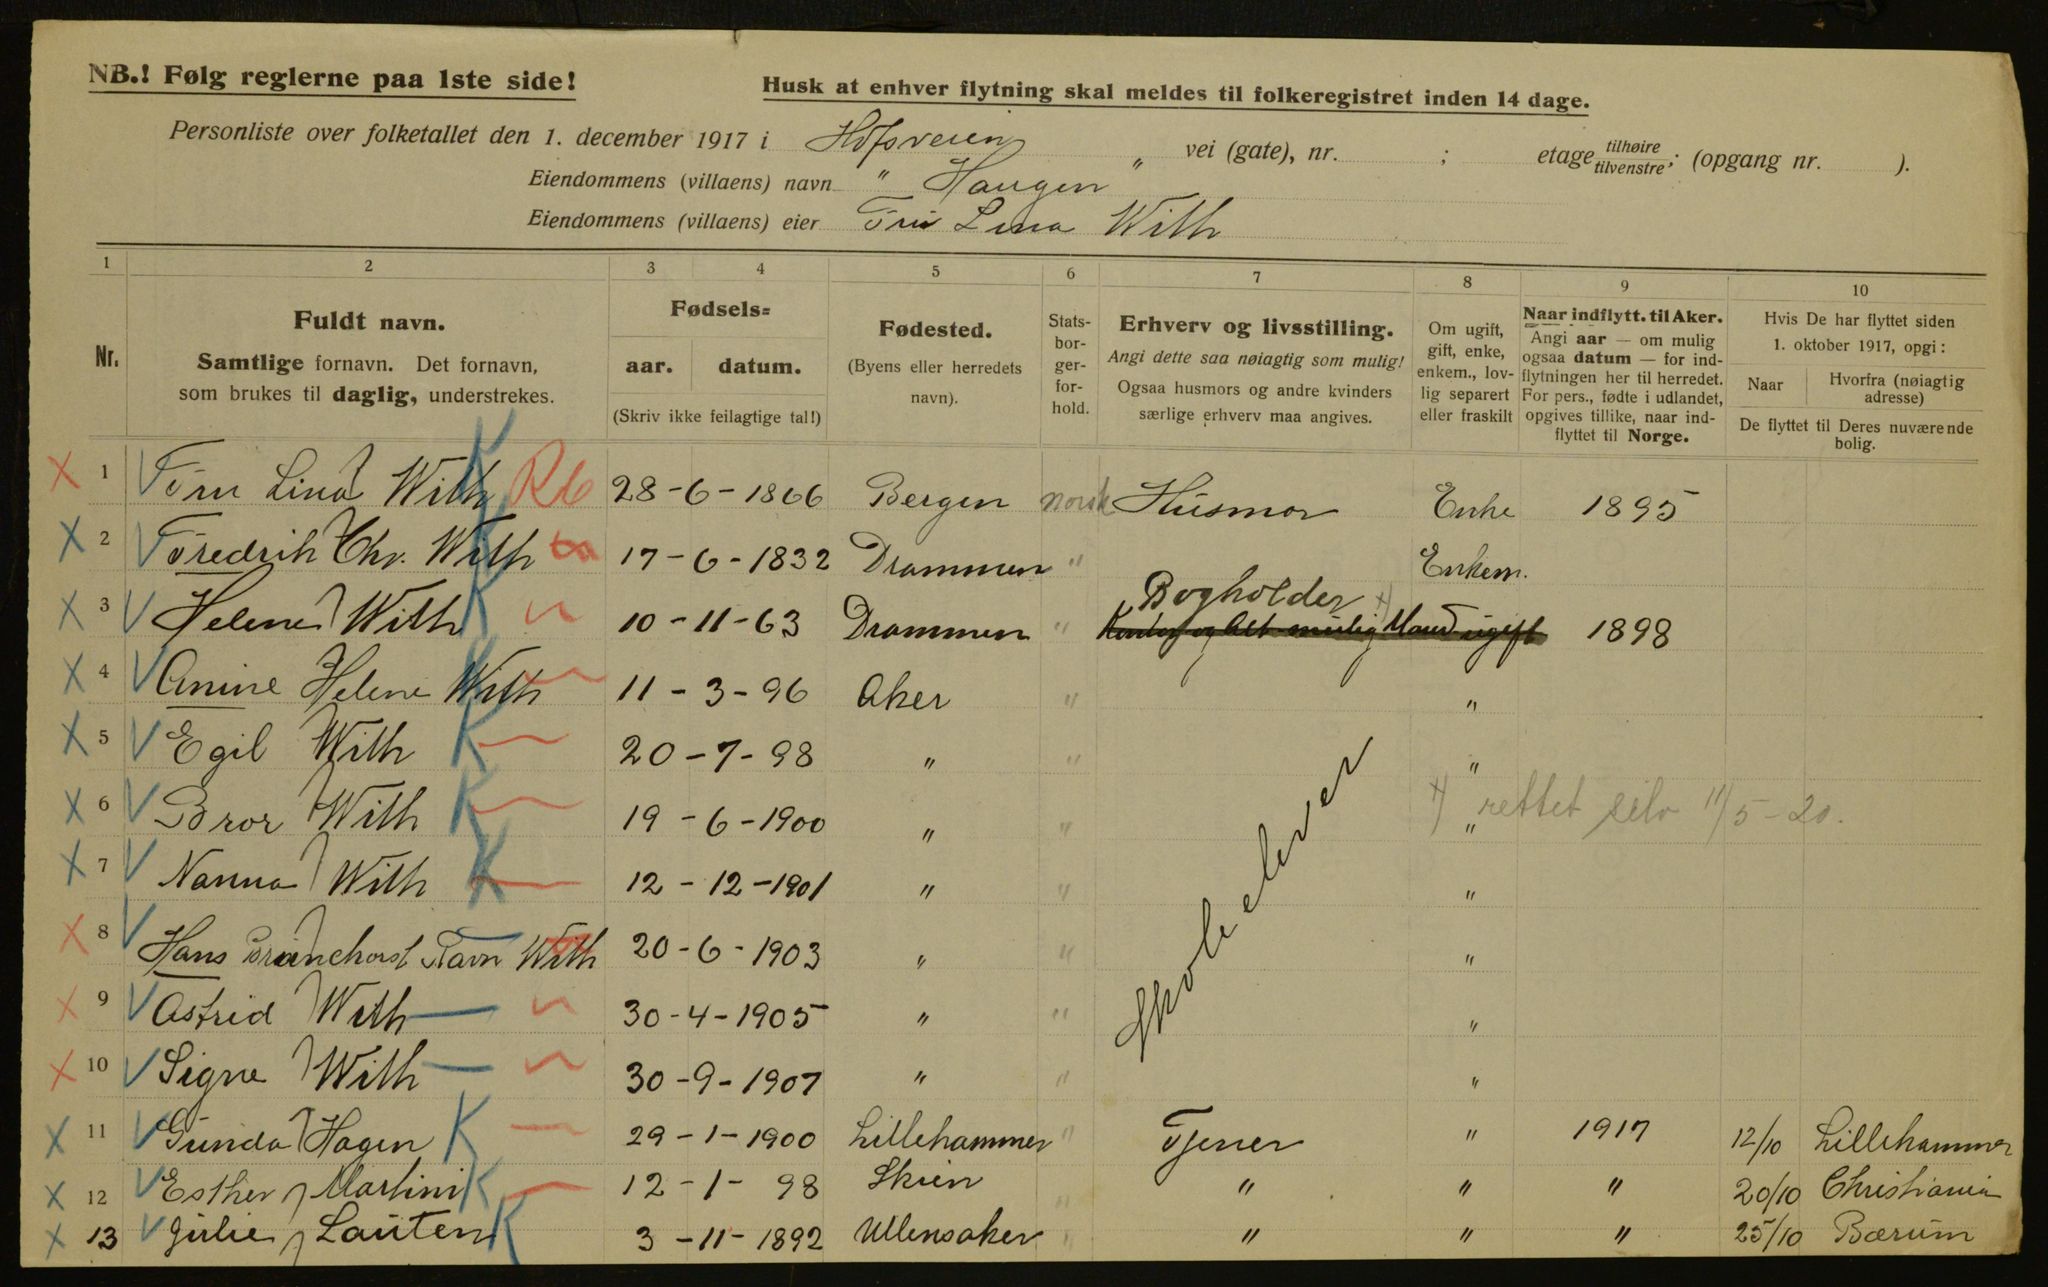 NB.! Følg reglerne paa 1ste side!
Husk at enhver flytning skal meldes til folkeregistret inden 14 dage.
Personliste over folketallet den 1. december 1917 i Hofsveien " vei (gate), nr. ; etage tilhøire tilvenstre; (opgang nr. ).
Eiendommens (villaens) navn " Haugen "
Eiendommens (villaens) eier Fru Lina With
1 2 3 4 5 6 7 8 9 10
Nr.
Fuldt navn.
Samtlige fornavn. Det fornavn,
som brukes til daglig, understrekes.
Fødsels=
aar. datum.
(Skriv ikke feilagtige tal!)
Fødested.
(Byens eller herredets
navn).
Stats-
bor-
ger-
for-
hold.
Erhverv og livsstilling.
Angi dette saa nøiagtig som mulig!
Ogsaa husmors og andre kvinders
særlige erhverv maa angives.
Om ugift,
gift, enke,
enkem., lov-
lig separert
eller fraskilt
Naar indflytt. til Aker.
Angi aar — om mulig
ogsaa datum — for ind-
flytningen her til herredet.
For pers., fødte i udlandet,
opgives tillike, naar ind-
flyttet til Norge.
Hvis De har flyttet siden
1. oktober 1917, opgi:
Naar
Hvorfra (nøiagtig
adresse)
De flyttet til Deres nuværende
bolig.
X 1 Fru Lina With 28-6-1866 Bergen norsk Husmor Enke 1895
X 2 Fredrik Chr. With 17-6-1832 Drammen " Enkem.
Bogholder x)
X 3 Helene With K 10-11-63 Drammen " Kontor og Alt mulig Mand ugift 1898
X 4 Anine Helene With 11-3-96 Aker " "
X 5 Egil With K 20-7-98 " " "
X 6 Bror With K 19-6-1900 " " " x) rettet selv 11/5-20.
X 7 Nanna With K 12-12-1901 " " "
Skoleelever
X 8 Hans Favn With 20-6-1903 " " "
X 9 Astrid With 30-4-1905 " " "
X 10 Signe With 30-9-1907 " " "
X 11 Gunda Hagen K 29-1-1900 Lillehammer " Tjener " 1917 12/10 Lillehammer
X 12 Esther Martini K 12-1-98 Skien " " " " 20/10 Christiania
X 13 Julie Lauten K 3-11-1892 Ullensaker " " " " 25/10 Bærum